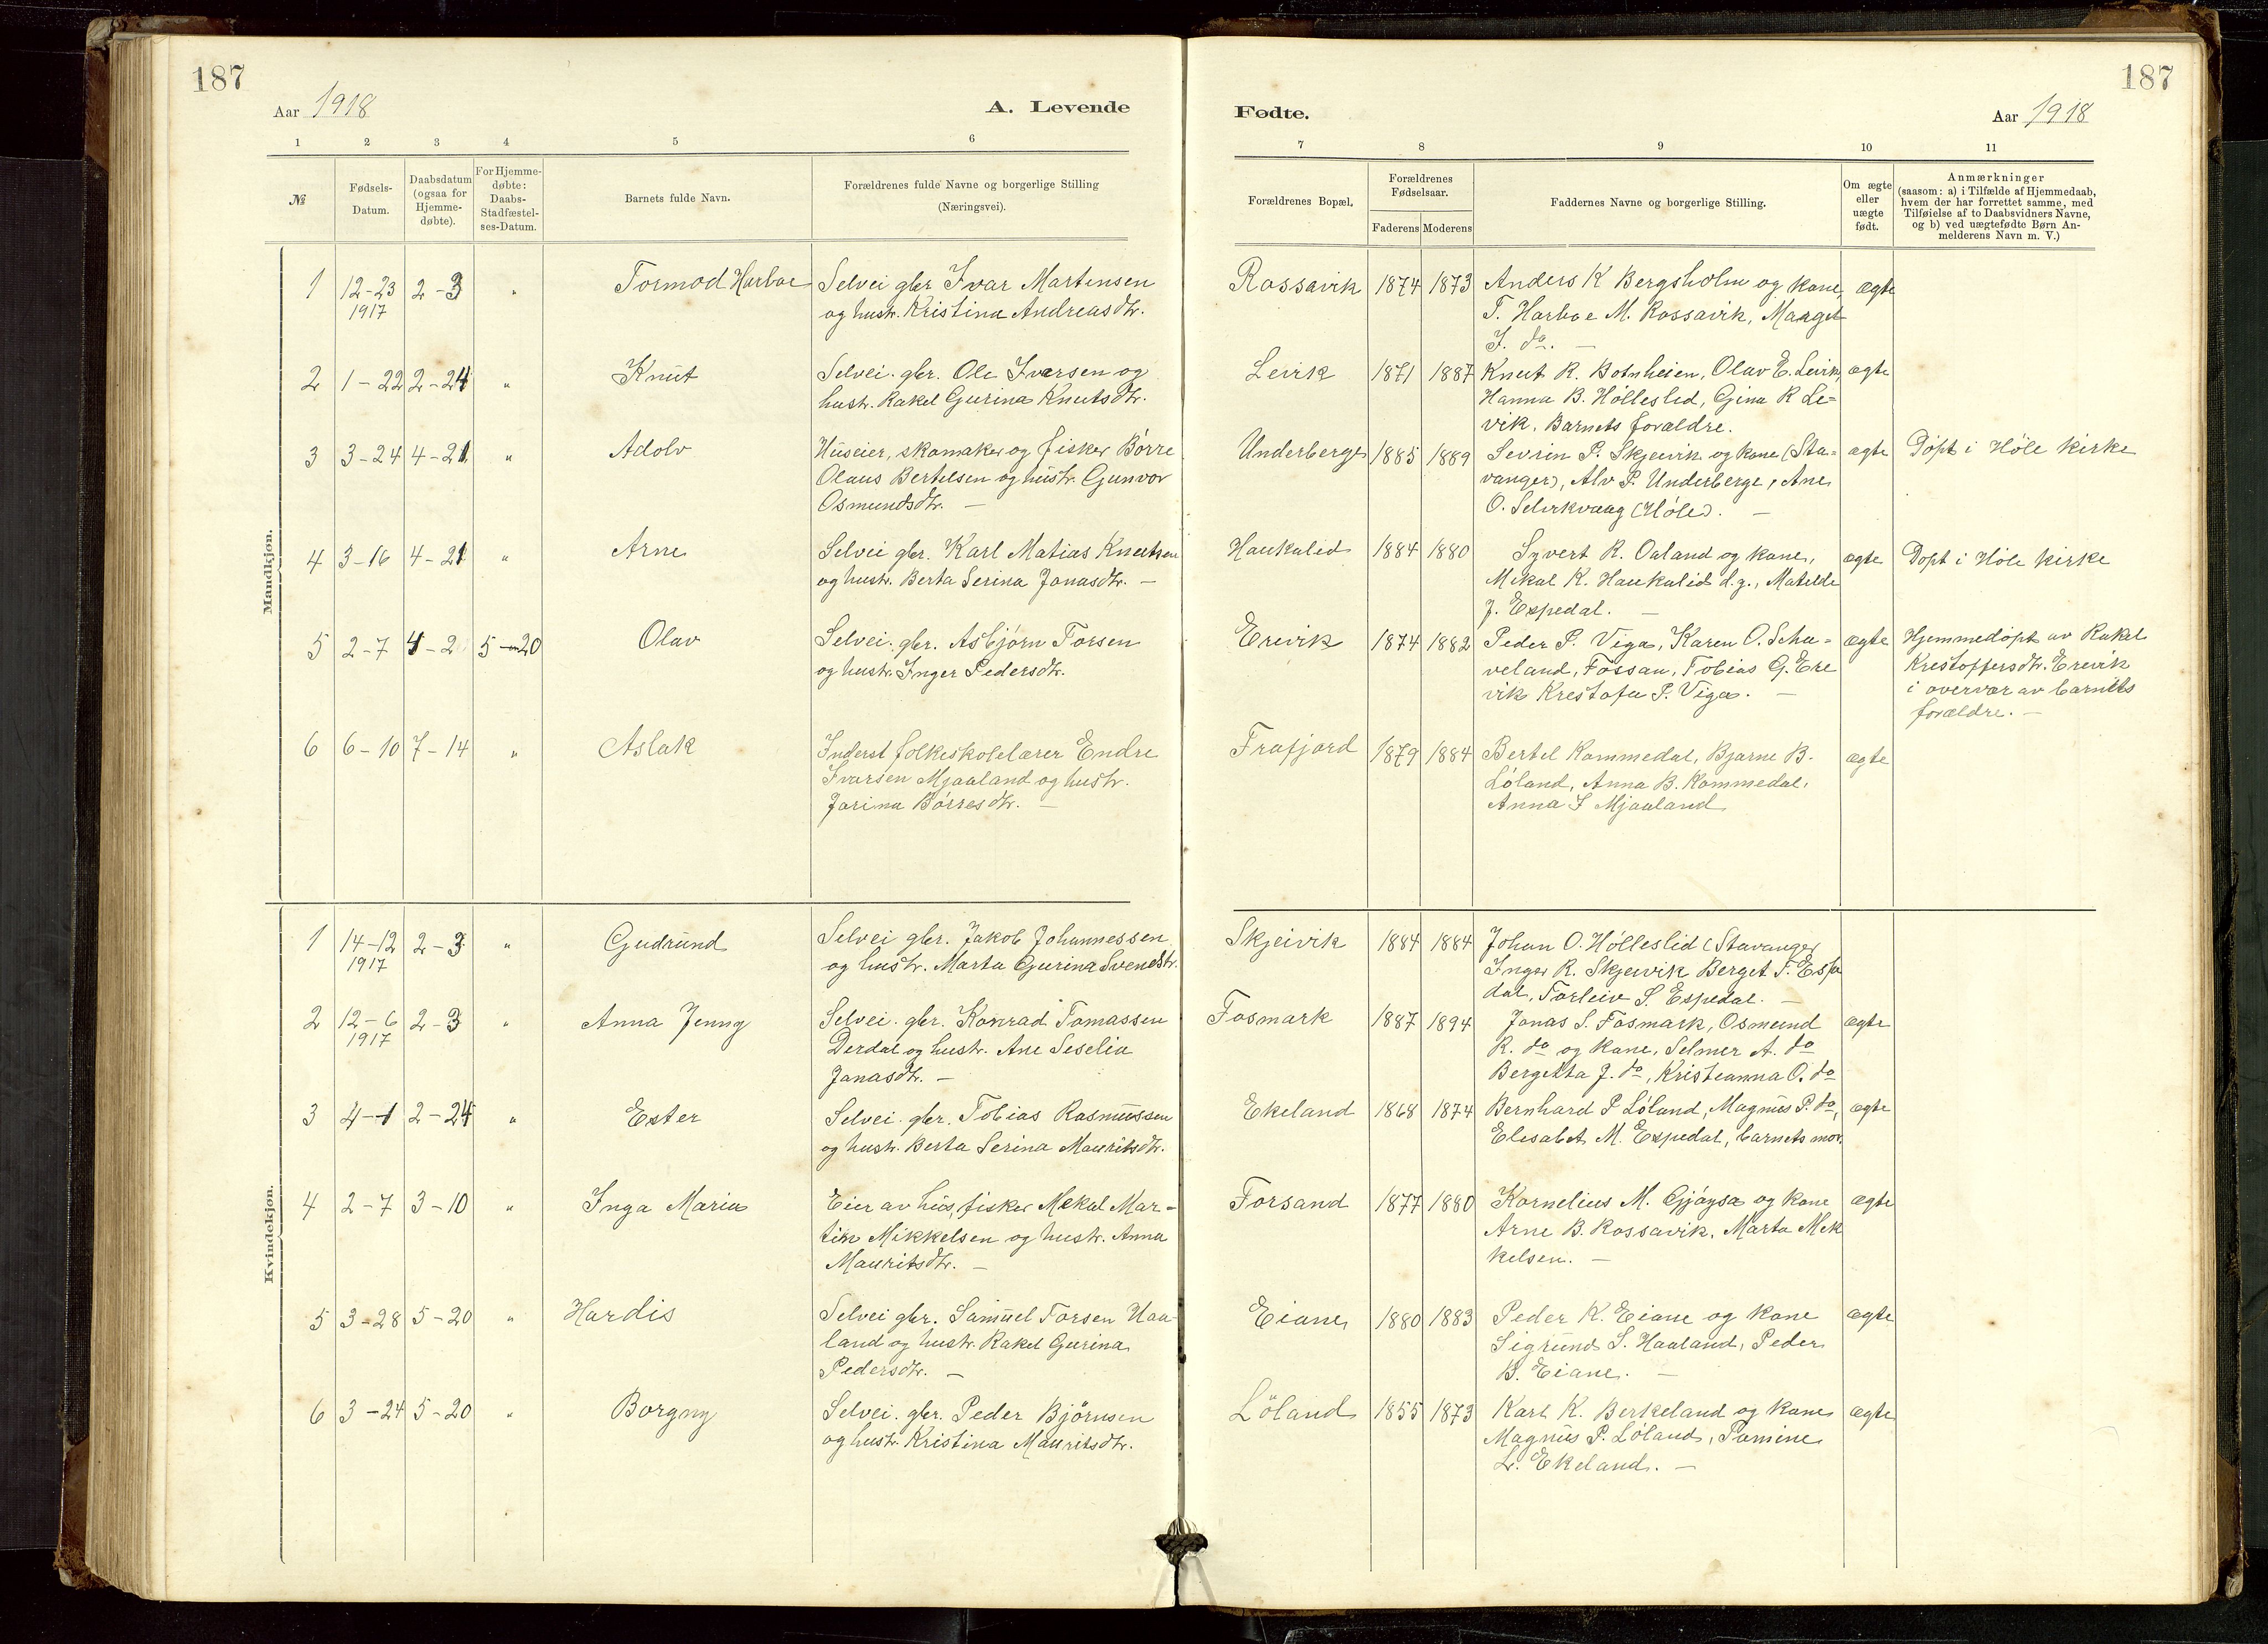 187
Aar 1918
A. Levende
1 2 3 4 5 6
№
Fødsels-
Datum.
Daabsdatum
(ogsaa for
Hjemme-
døbte).
For Hjemme-
døbte:
Daabs-
Stadfæstel-
ses-Datum.
Barnets fulde Navn.
Forældrenes fulde Navne og borgerlige Stilling
(Næringsvei).
Mandkjøn.
1 12-23 2-3 " Tormod Harboe Selvei gbr. Ivar Martinsen
1917 og hustr. Kristina Andreasdtr.
2 1-22 2-24 " Knut Selvei. gbr. Ole Iversen og
hustr. Rakel Gurina Knutsdtr.
3 3-24 4-21 " Adolv Huseier, skomaker og fisker Børre
Olaus Bertelsen og hustr. Gunvor
Osmundsdtr. —
4 3-16 4-21 " Arne Selvei gbr. Karl Matias Knutsen
og hustr. Berta Serina Jonasdtr. —
5 2-7 4-2 5-20 Olav Selvei. gbr. Asbjørn Torsen
og hustr. Inger Pedersdtr.
6 6-10 7-14 " Aslak Inderst folkeskolelærer Endre
Ivarsen Mjaaland og hustr.
Jorina Børresdtr. —
Kvindekjøn.
1 14-12 2-3 " Gudrund Selvei gbr. Jakob Johannessen
1917 og hustr. Marta Gurina Svendsdtr.
2 12-6 2-3 " Anna Jenny Selvei. gbr. Konrad Tomassen
1917 Derdal og hustr. Ane Seselia
Jonasdtr. —
3 4-1 2-24 " Ester Selvei. gbr. Tobias Rasmussen
og hustr. Berta Serina Mauritsdtr.
4 2-7 3-10 " Inga Marie Eier av hus, fisker Mekal Mar-
tin Mikkelsen og hustr. Anna
Mauritsdtr. —
5 3-28 5-20 " Hardis Selvei gbr. Samuel Torsen Haa-
land og hustr. Rakel Gurina
Pedersdtr. —
6 3-24 5-20 " Borgny Selvei. gbr. Peder Bjørnsen
og hustr. Kristina Mauritsdtr.
187
Fødte.
Aar 1918
7 8 9 10 11
Forældrenes Bopæl.
Forældrenes
Fødselsaar.
Faderens Moderens
Faddernes Navne og borgerlige Stilling.
Om ægte
eller
uægte
født.
Anmærkninger
(saasom: a) i Tilfælde af Hjemmedaab,
hvem der har forrettet samme, med
Tilføielse af to Daabsvidners Navne,
og b) ved uægtefødte Børn An-
melderens Navn m. V.)
Rossavik 1874 1873 Anders K Bergsholm og kone, ægte
T. Harboe M. Rossavik, Marget
I. do. —
Levik 1871 1887 Knut R. Botnheien, Olav E. Leirk, ægte
Hanna B. Hølleslid, Gina R Le-
vik, Barnets forældre.
Underberge 1885 1889 Sevrin P. Skjeivik og kone (Sta- ægte Døpt i Høle kirke
vanger), Alv P. Underberge, Ane
O. Selvikvaag (Høle). —
Haukalid 1884 1880 Syvert R. Oaland og kone, ægte Døpt i Høle kirke
Mikal K. Haukalid d.y., Matilde
J. Espedal. —
Erevik 1874 1882 Peder P. Viga, Karen O. Scha- ægte Hjemmedøpt av Rakel
veland, Fossan, Tobias G. Ere Krestoffersdtr. Erevik
vik Krestofa P. Viga. — i overvær av barnets
forældre. —
Frafjord 1879 1884 Bertel Kommedal, Bjarne B. ægte
Løland, Anna B. Kommedal,
Anna I Mjaaland
Skjeivik 1884 1884 Johan O. Hølleslid (Stavanger
Inger R. Skjeivik Berget T. Espe
dal, Torleiv S. Espedal. —
Fosmark 1887 1894 Jonas S. Fosmark, Osmund ægte
R. do og kone, Selmer A. do
Bergetta J. do, Kristeanna O. do
Ekeland 1868 1874 Bernhard P Løland, Magnus P. do, ægte
Elesabet M. Espedal, barnets mor
Forsand 1877 1880 Kornelius M. Gjøysa og kone ægte
Arne B. Rossavik, Marta Mek
kelsen. —
Eiane 1880 1883 Peder K. Eiane og kone ægte
Sigrund S. Haaland, Peder
B. Eiane. —
Löland 1855 1873 Karl K. Berkeland og kone ægte
Magnus P. Løland, Tomine
L. Ekeland. —